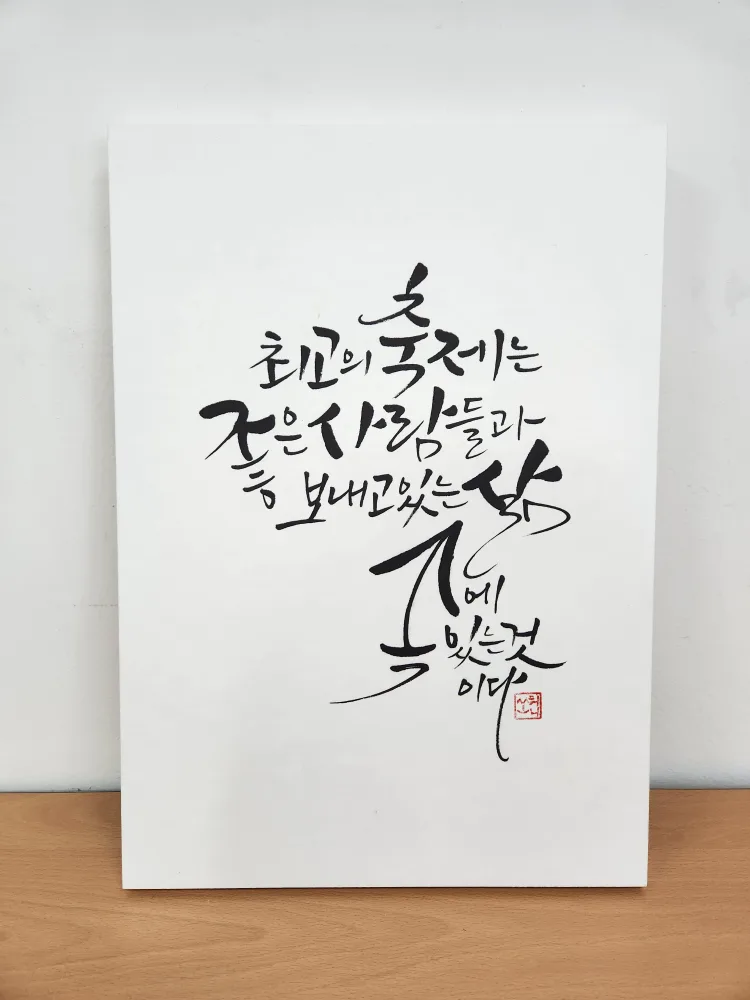 최고의 축제는
좋은 사람들과
보내고있는 삶
속에
있는것
이다